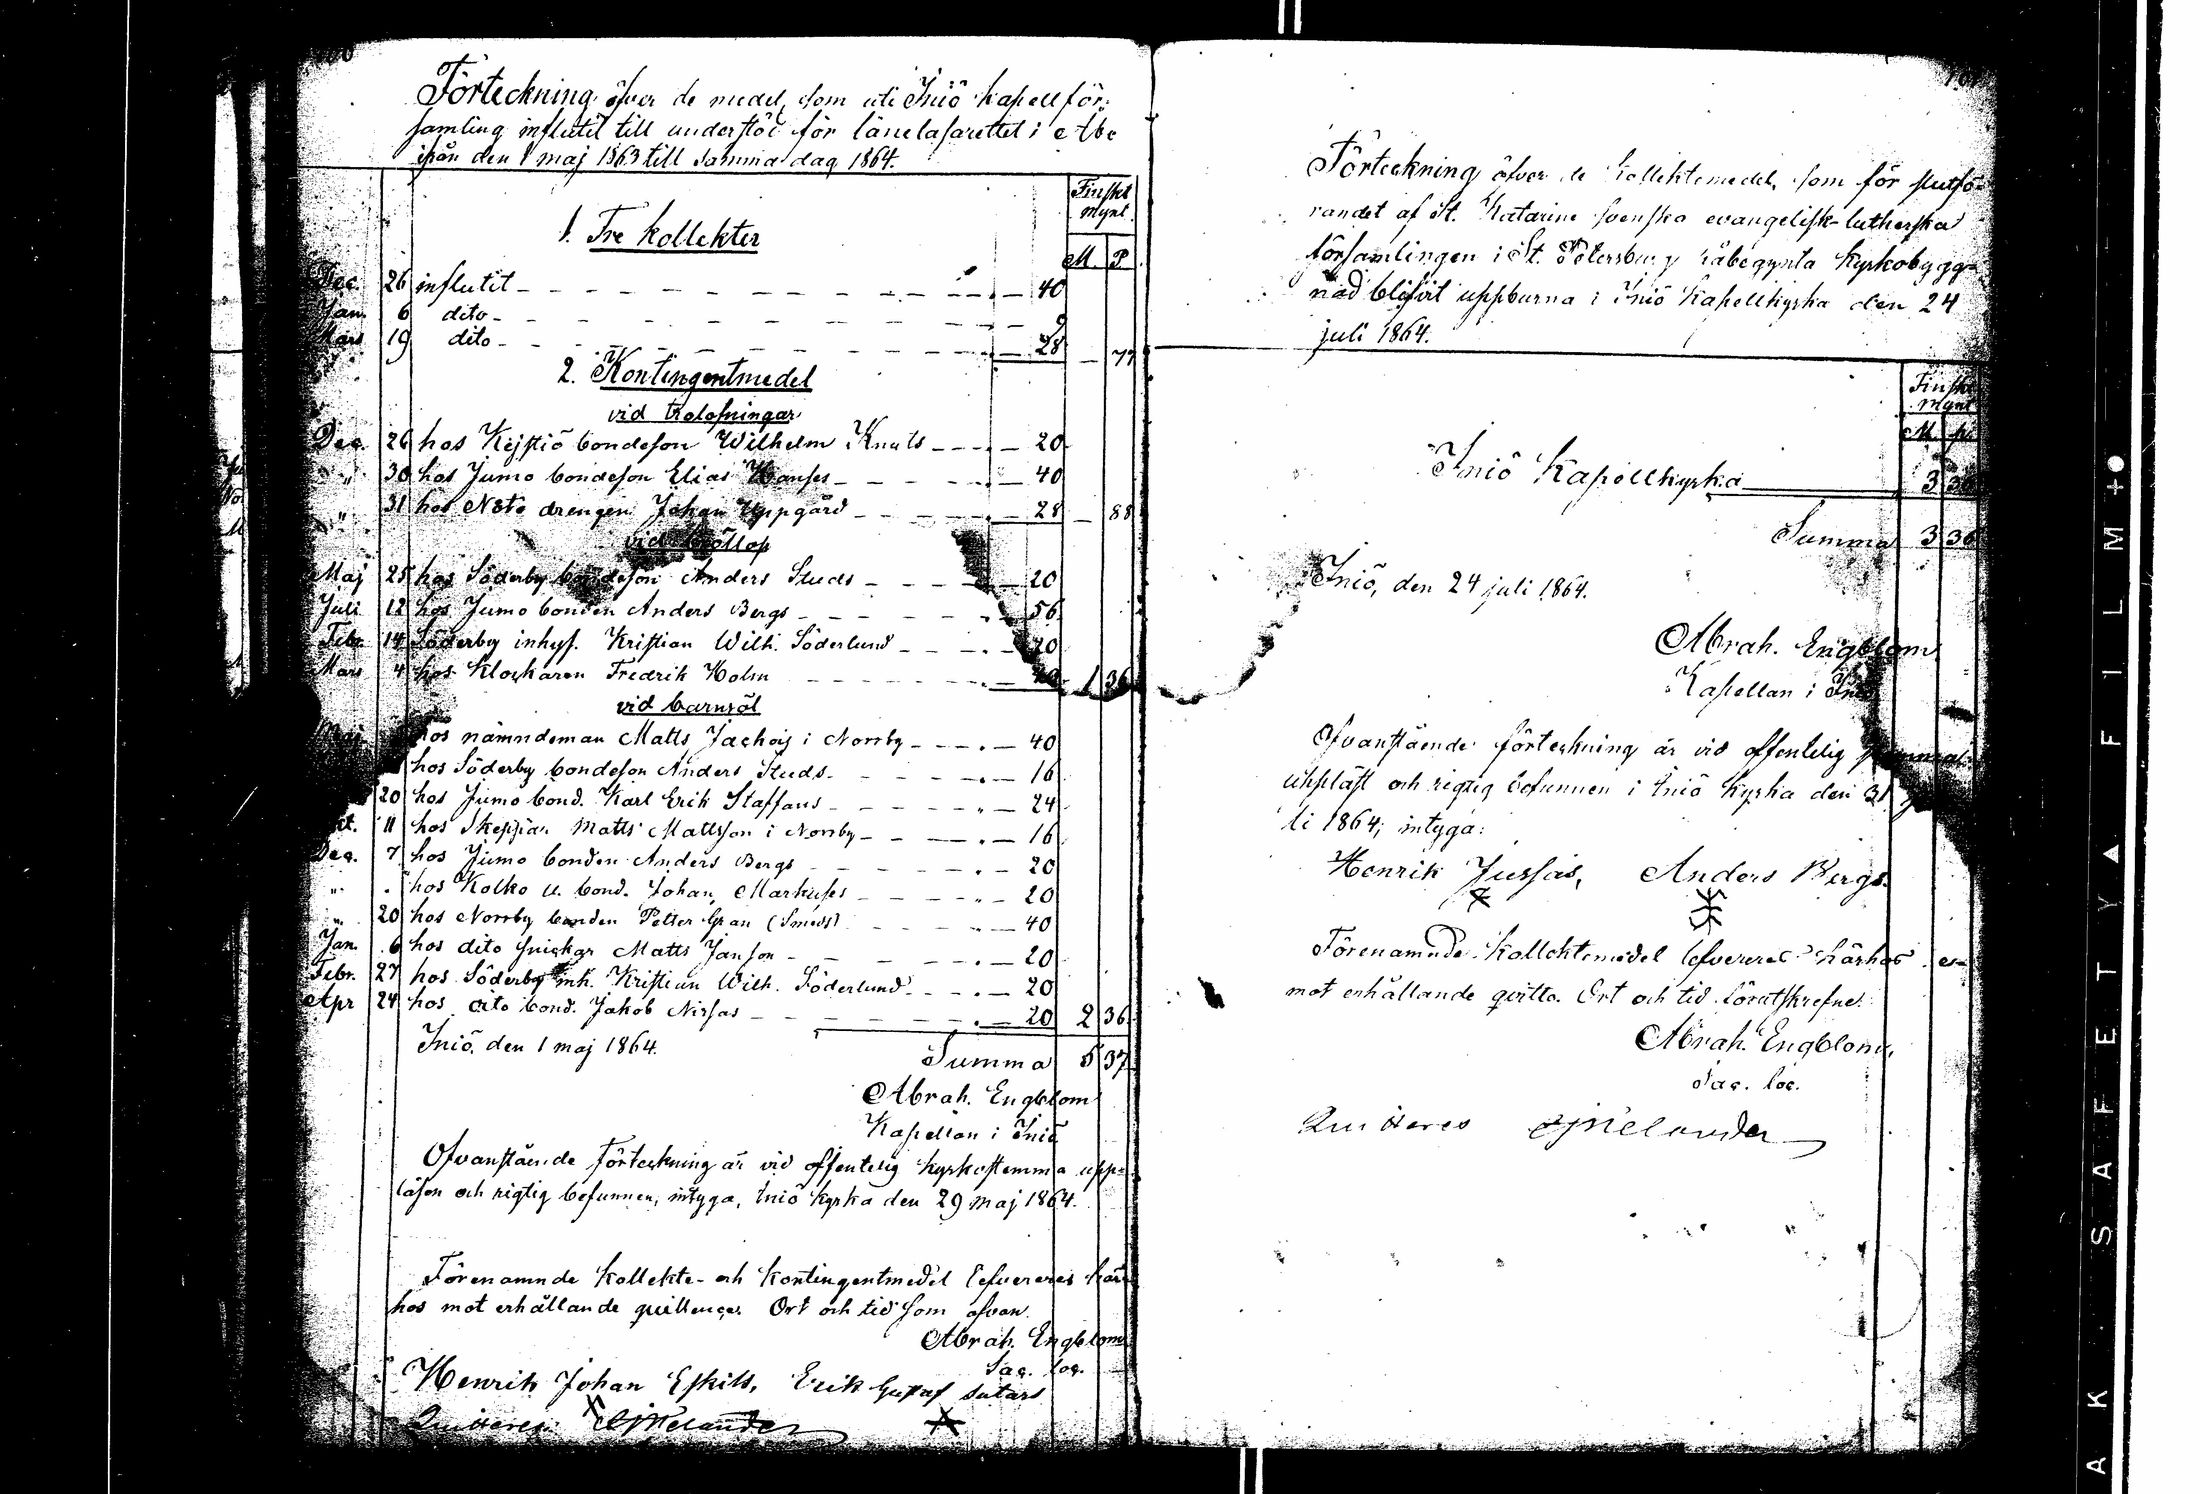 Förteckning öfver de medel, som uti Iniö kapellför-
samling influtit till understöd för länelasarettet i Åbo
ifrån den 1 maj 1863 till samma dag 1864.
Finskt
mynt
1. Tre kollekter
M. P
Dec. 26 influtit - - - 40
Jan. 6 dito - - - 9
Mars 19 dito - - - 28 - 77
2. Kontingentmedel
vid trolofningar
Dec. 26 hos Kejstiö bondeson Wilhelm Knuts - - - 20
" 30 hos Jumo bondeson Elias Hanses - - - 40
" 31 hos Nåto drengen Johan Uppgård - - - 28 - 88
vid bröllop
Maj 25 hos Söderby bondeson Anders Studs - - - 20
Juli 12 hos Jumo bonden Anders Bergs - - - 56
Febr. 14 Söderby inhys. Kristian Wilh. Söderlund - - - 20
Mars 4 hos Klockaren Fredrik Holm - - - 40 1 36
vid barnsöl
Maj hos nämndeman Matts Jachois i Norrby - - - 40
hos Söderby bondeson Anders Studs - - - 16
20 hos Jumo bond. Karl Erik Staffans - - - 24
kt. 11 hos Skeppar Matts Mattsson i Norrby - - - 16
Dec. 7 hos Jumo bonden Anders Bergs - - - 20
" " hos Kolko u. bond. Johan Markuses - - - 20
" 20 hos Norrby bonden Petter Gran (Smeds) - - - 40
Jan. 6 hos dito snickar Matts Janson - - - 20
Febr. 27 hos Söderby inh. Kristian Wilh. Söderlund - - - 20
Apr 24 hos dito bond. Jakob Nissas - - - 20 2 36
Iniö, den 1 maj 1864.
Summa 5 37
Abrah. Engblom
Kapellan i Iniö
Ofvanstående förteckning är vid offentelig kyrkostemma upp-
läsen och rigtig befunnen, intyga, Iniö kyrka den 29 maj 1864.
Förenamnde kollekte- och kontingentmedel lefvereres här-
hos mot erhållande quittence. Ort och tid som ofvan.
Abrah. Engblom
Sac. loc.
Henrik Johan Eskils, Erik Gustaf Sutars
Quitteres CJMelander
Förteckning öfver de kollektemedel, som för slutfö-
randet af St. Katarine svenska evangelisk-lutherska
församlingen i St. Petersburg påbegynta kyrkobygg-
nad blifvit uppburna i Iniö kapellkyrka den 24
juli 1864.
Finskt
mynt
M. p.
Iniö Kapellkyrka 3 36
Summa 3 36
Iniö, den 24 juli 1864.
Abrah. Engblom
Kapellan i Iniö
Ofvanstående förteckning är vid offentelig
uppläst och rigtig befunnen i Iniö kyrka den 31 ju-
li 1864; intyga:
Henrik Jussas, Anders Bergs.
Förenamnde kollektemedel lefvereres härhos
mot erhållande qvitto. Ort och tid förutskrefne.
Abrah. Engblom,
Sac. loc.
Quitteres CJMelander
AK SAFETY ▲ FILM